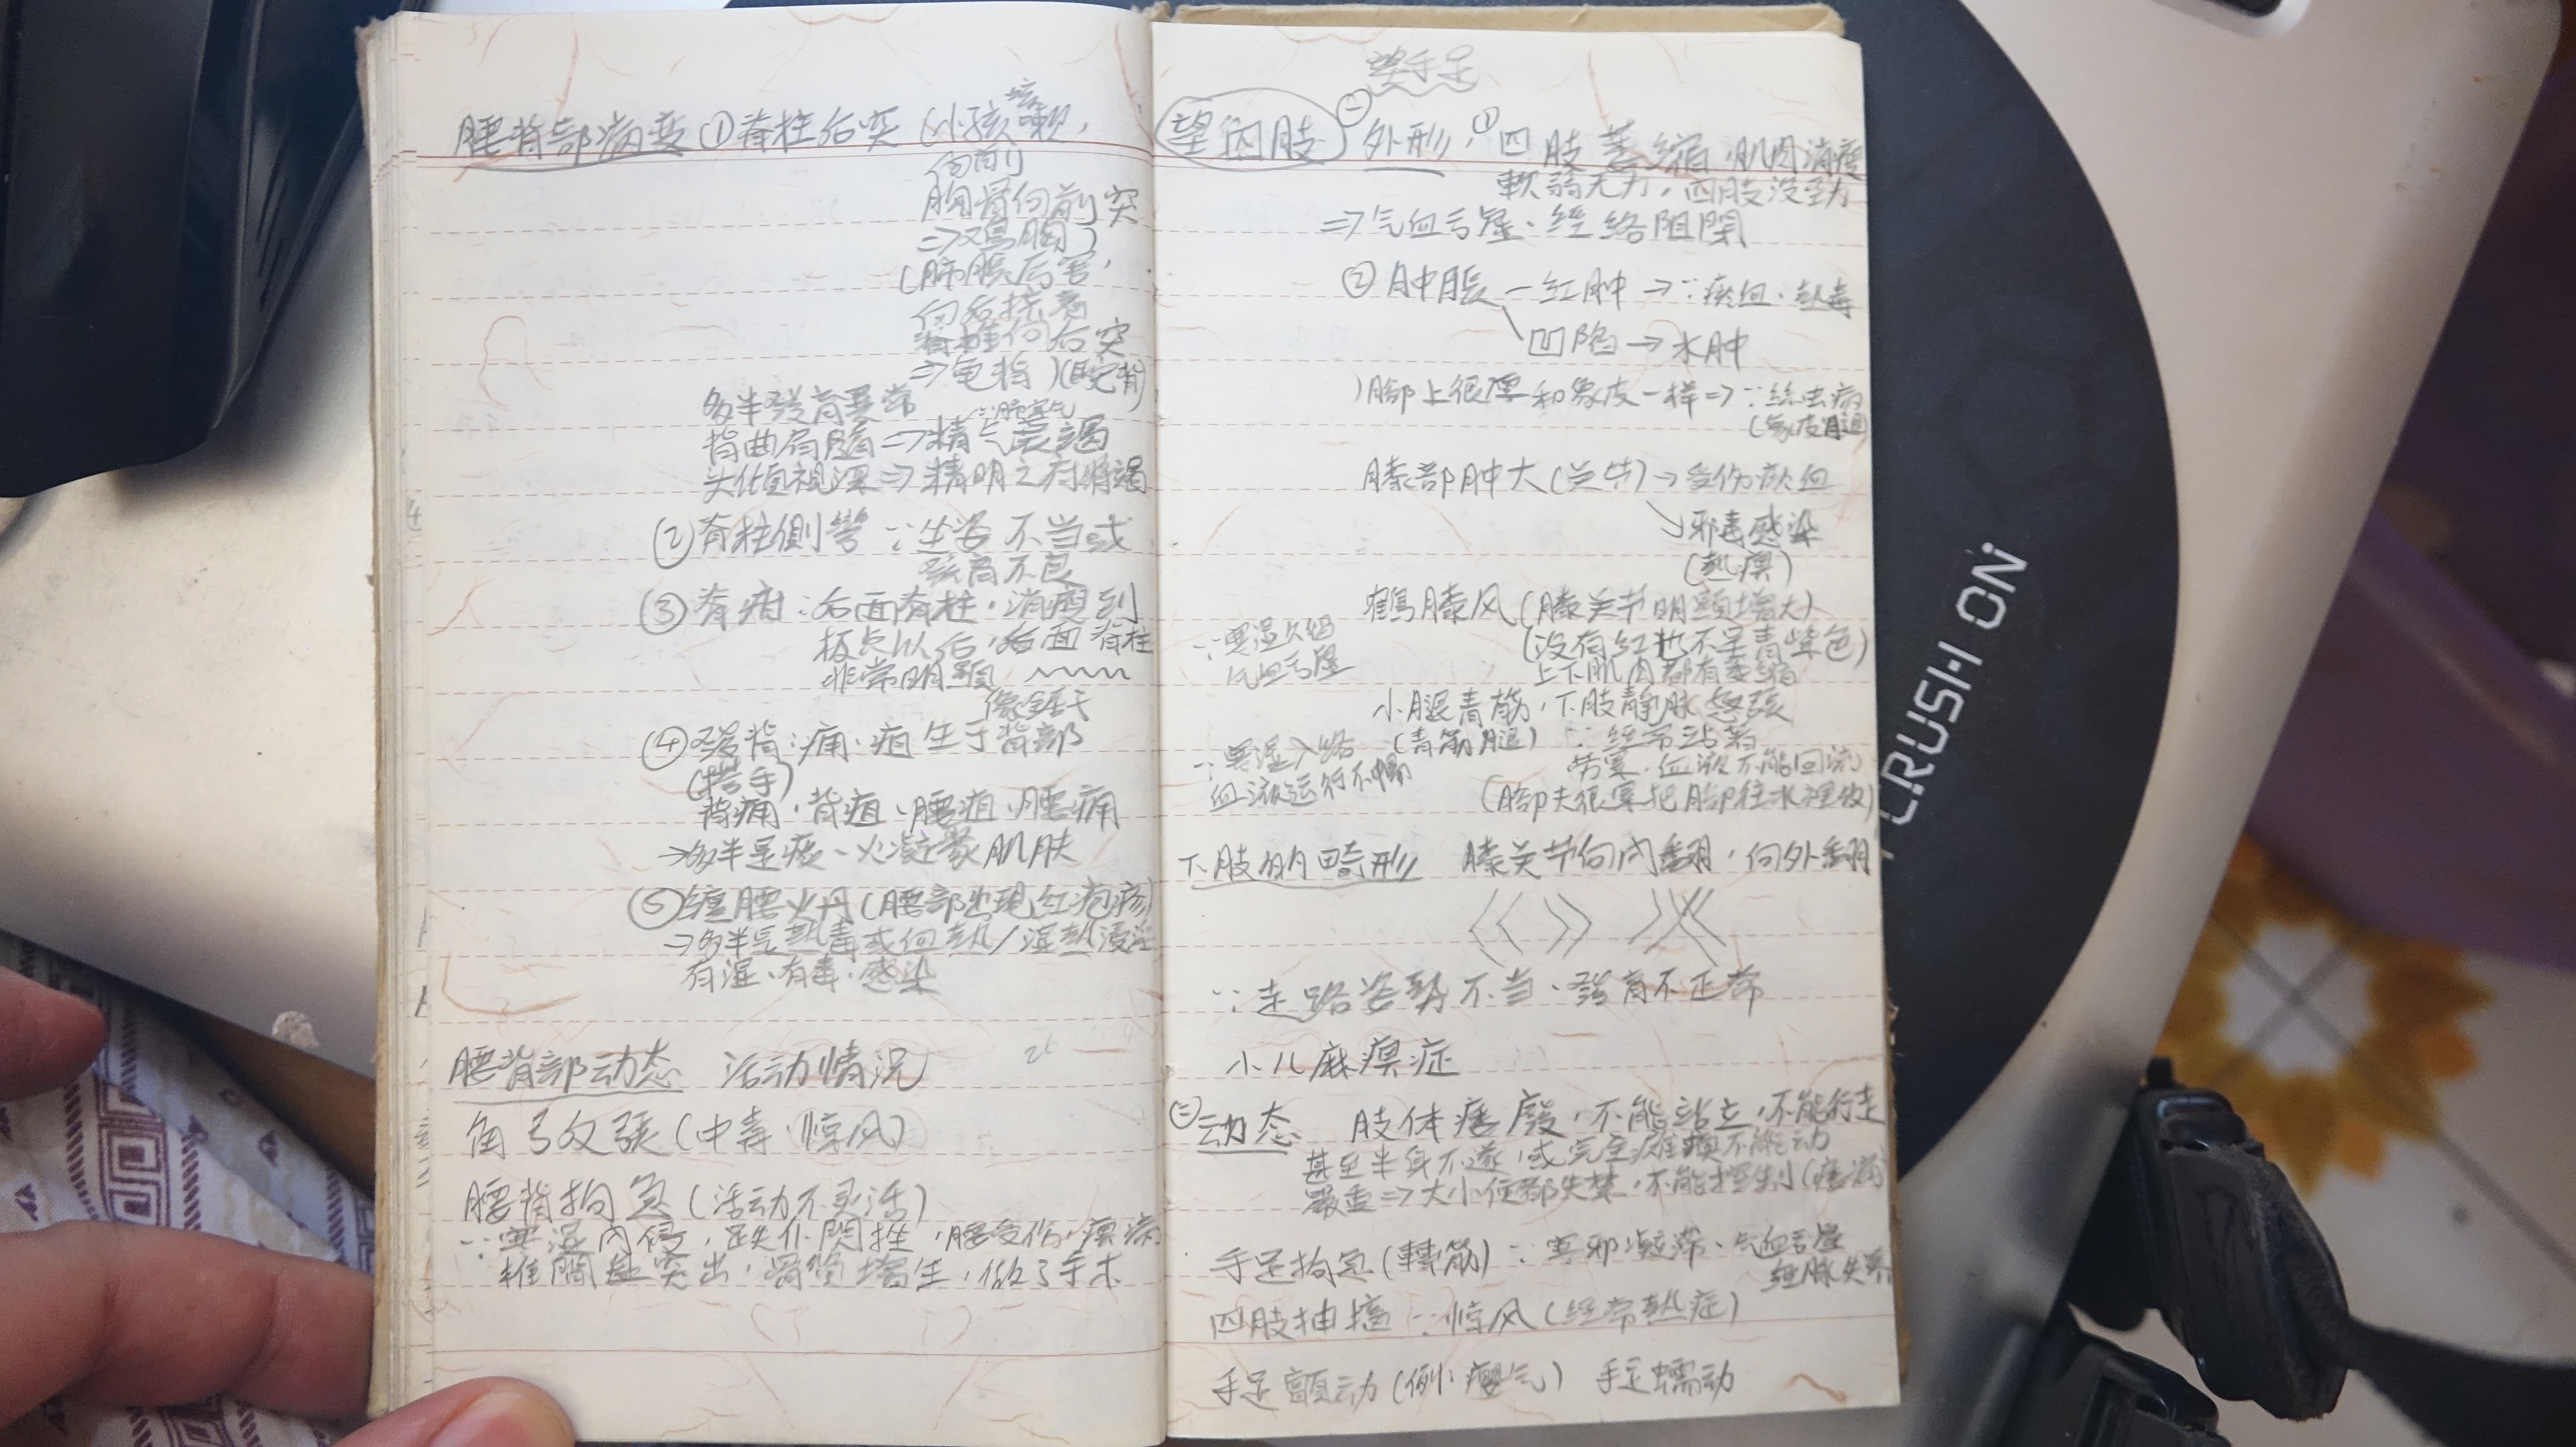 腰背部病变①脊柱后突(小孩咳喇,
向前
胸骨向前突
⇒鸡胸)
(肺脹厉害,
向后挤着
脊椎向后突
⇒龟背)(駝背)
多半發育異常
∵肺氣
背曲肩隨⇒精气衰竭
头傾視深⇒精明之府將竭
②脊柱側彎∵坐姿不当或
發育不良
③脊疳:后面脊柱,消瘦到
极点以后,后面脊柱
非常明顯
像鋸子
④發背:癰、疽生于背部
(搭手)
背癰、背疽、腰疽、腰癰
→多半是痰、火凝聚肌肤
⑤纏腰火丹(腰部出現紅疱疹)
→多半是熱毒或血熱/湿熱浸淫
有湿、有毒、感染
腰背部动态 活动情況
26
角弓反張(中毒、惊风)
腰背拘急(活动不灵活)
∵寒湿內侵,跌仆閃挫,腰受伤,痹病
椎間盤突出,骨質增生,做了手术
望手足
望四肢 ㊀外形,①四肢萎縮,肌肉消瘦
軟弱无力,四肢没劲
⇒气血亏虛、經絡阻閉
②肿脹—紅肿→∵瘀血、熱毒
凹陷→水肿
脚上很厚和象皮一样⇒∵絲虫病
(象皮腿)
膝部肿大(关节)→受伤瘀血
邪毒感染
(熱痹)
鶴膝风(膝关节明顯增大)
∵寒湿久留
气血亏虛
(没有紅也不呈青紫色)
上下肌肉都有萎縮
小腿青筋,下肢静脉怒張
(青筋腿) ∵經常站着
∵寒湿入絡
血液运行不暢
劳累,血液不能回流
(脚夫很累把脚往水裡放)
下肢的畸形 膝关节向內翻,向外翻
∵走路姿勢不当、發育不正常
小儿麻痹症
㊁动态 肢体痿廢,不能站立,不能行走
甚至半身不遂,或完全癱瘓不能动
嚴重⇒大小便都失禁,不能控制(痿病)
手足拘急(轉筋)∵寒邪凝滞、气血亏虛
經脉失養
四肢抽搐∵惊风(經常熱症)
手足顫动(例:癭气) 手足蠕动
CRUSH ON